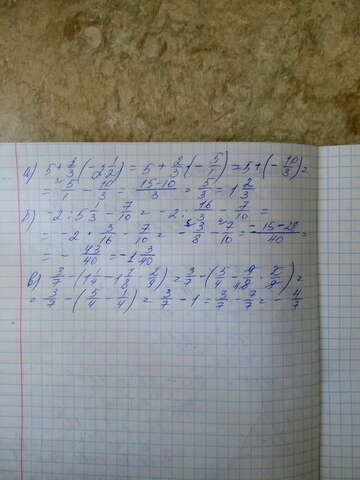 а) 5+2/3·(-2 1/2) = 5+2/3·(-5/1) = 5+(-10/3) =
= 5/1 - 10/3 = 15-10/3 = 5/3 = 1 2/3
б) -2:5 1/3 - 7/10 = -2:16/3 - 7/10 =
= -2·3/16 - 7/10 = -3/8 - 7/10 = -15-28/40 =
= -43/40 = -1 3/40
в) 3/7 - (1 1/4 - 1 1/8 · 2/9) = 3/7 - (5/4 - 9/8 · 2/9) =
= 3/7 - (5/4 - 1/4) = 3/7 - 1 = 3/7 - 7/7 = -4/7